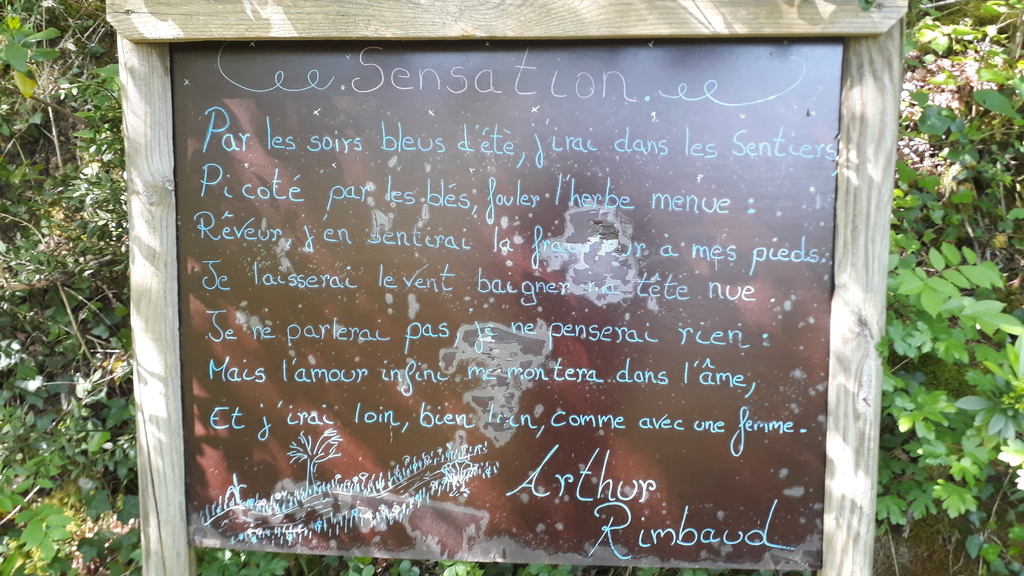 Sensation.
Par les soirs bleus d'étè, j'irai dans les Sentiers,
Picoté par les blés, fouler l'herbe menue :
Rêveur, j'en sentirai la a mes pieds.
Je laisserai le vent baigner ma tête nue.
Je ne parlerai pas, je ne penserai rien :
Mais l'amour infini me montera dans l'âme,
Et j'irai loin, bien loin, comme avec une femme.
Arthur
Rimbaud